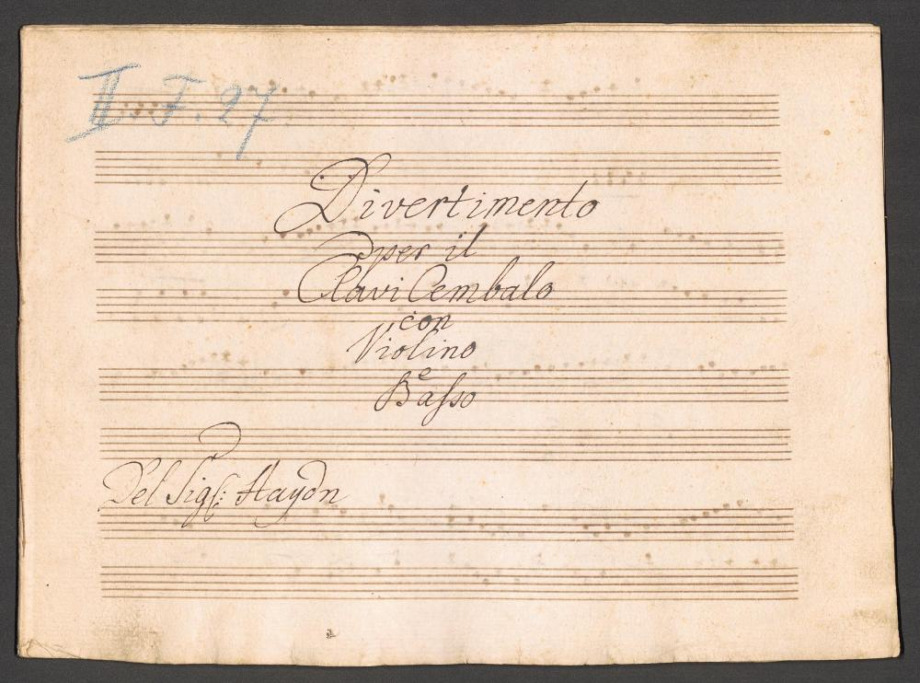 II. F. 27
Divertimento
per il
ClaviCembalo
con
Violino
e
Basso
Del Sigl: Haydn